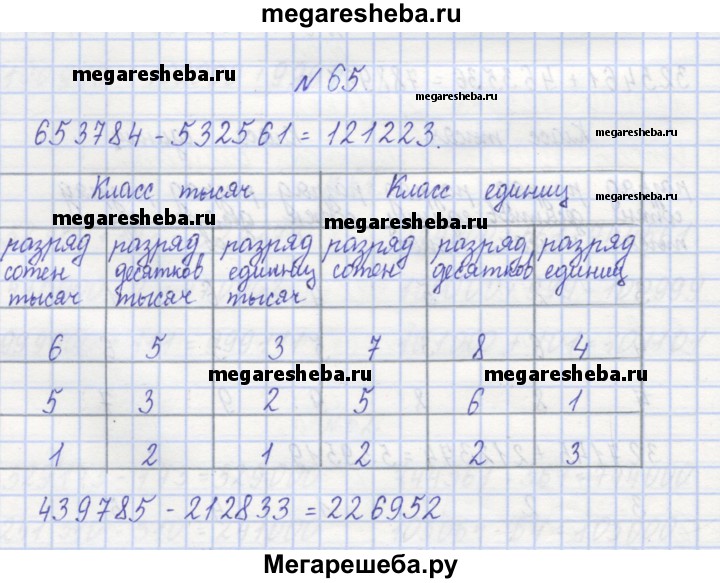 megaresheba.ru
megaresheba.ru
N 65
megaresheba.ru
653784 - 532561 = 121223.
megaresheba.ru
Класс тысяч Класс единиц
megaresheba.ru
megaresheba.ru megaresheba.ru
разряд разряд разряд разряд разряд разряд
сотен десятков единиц сотен десятков единиц
тысяч тысяч тысяч
6 5 3 7 8 4
megaresheba.ru megaresheba.ru
5 3 2 5 6 1
1 2 1 2 2 3
439785 - 212833 = 226952
Мегарешеба.ру